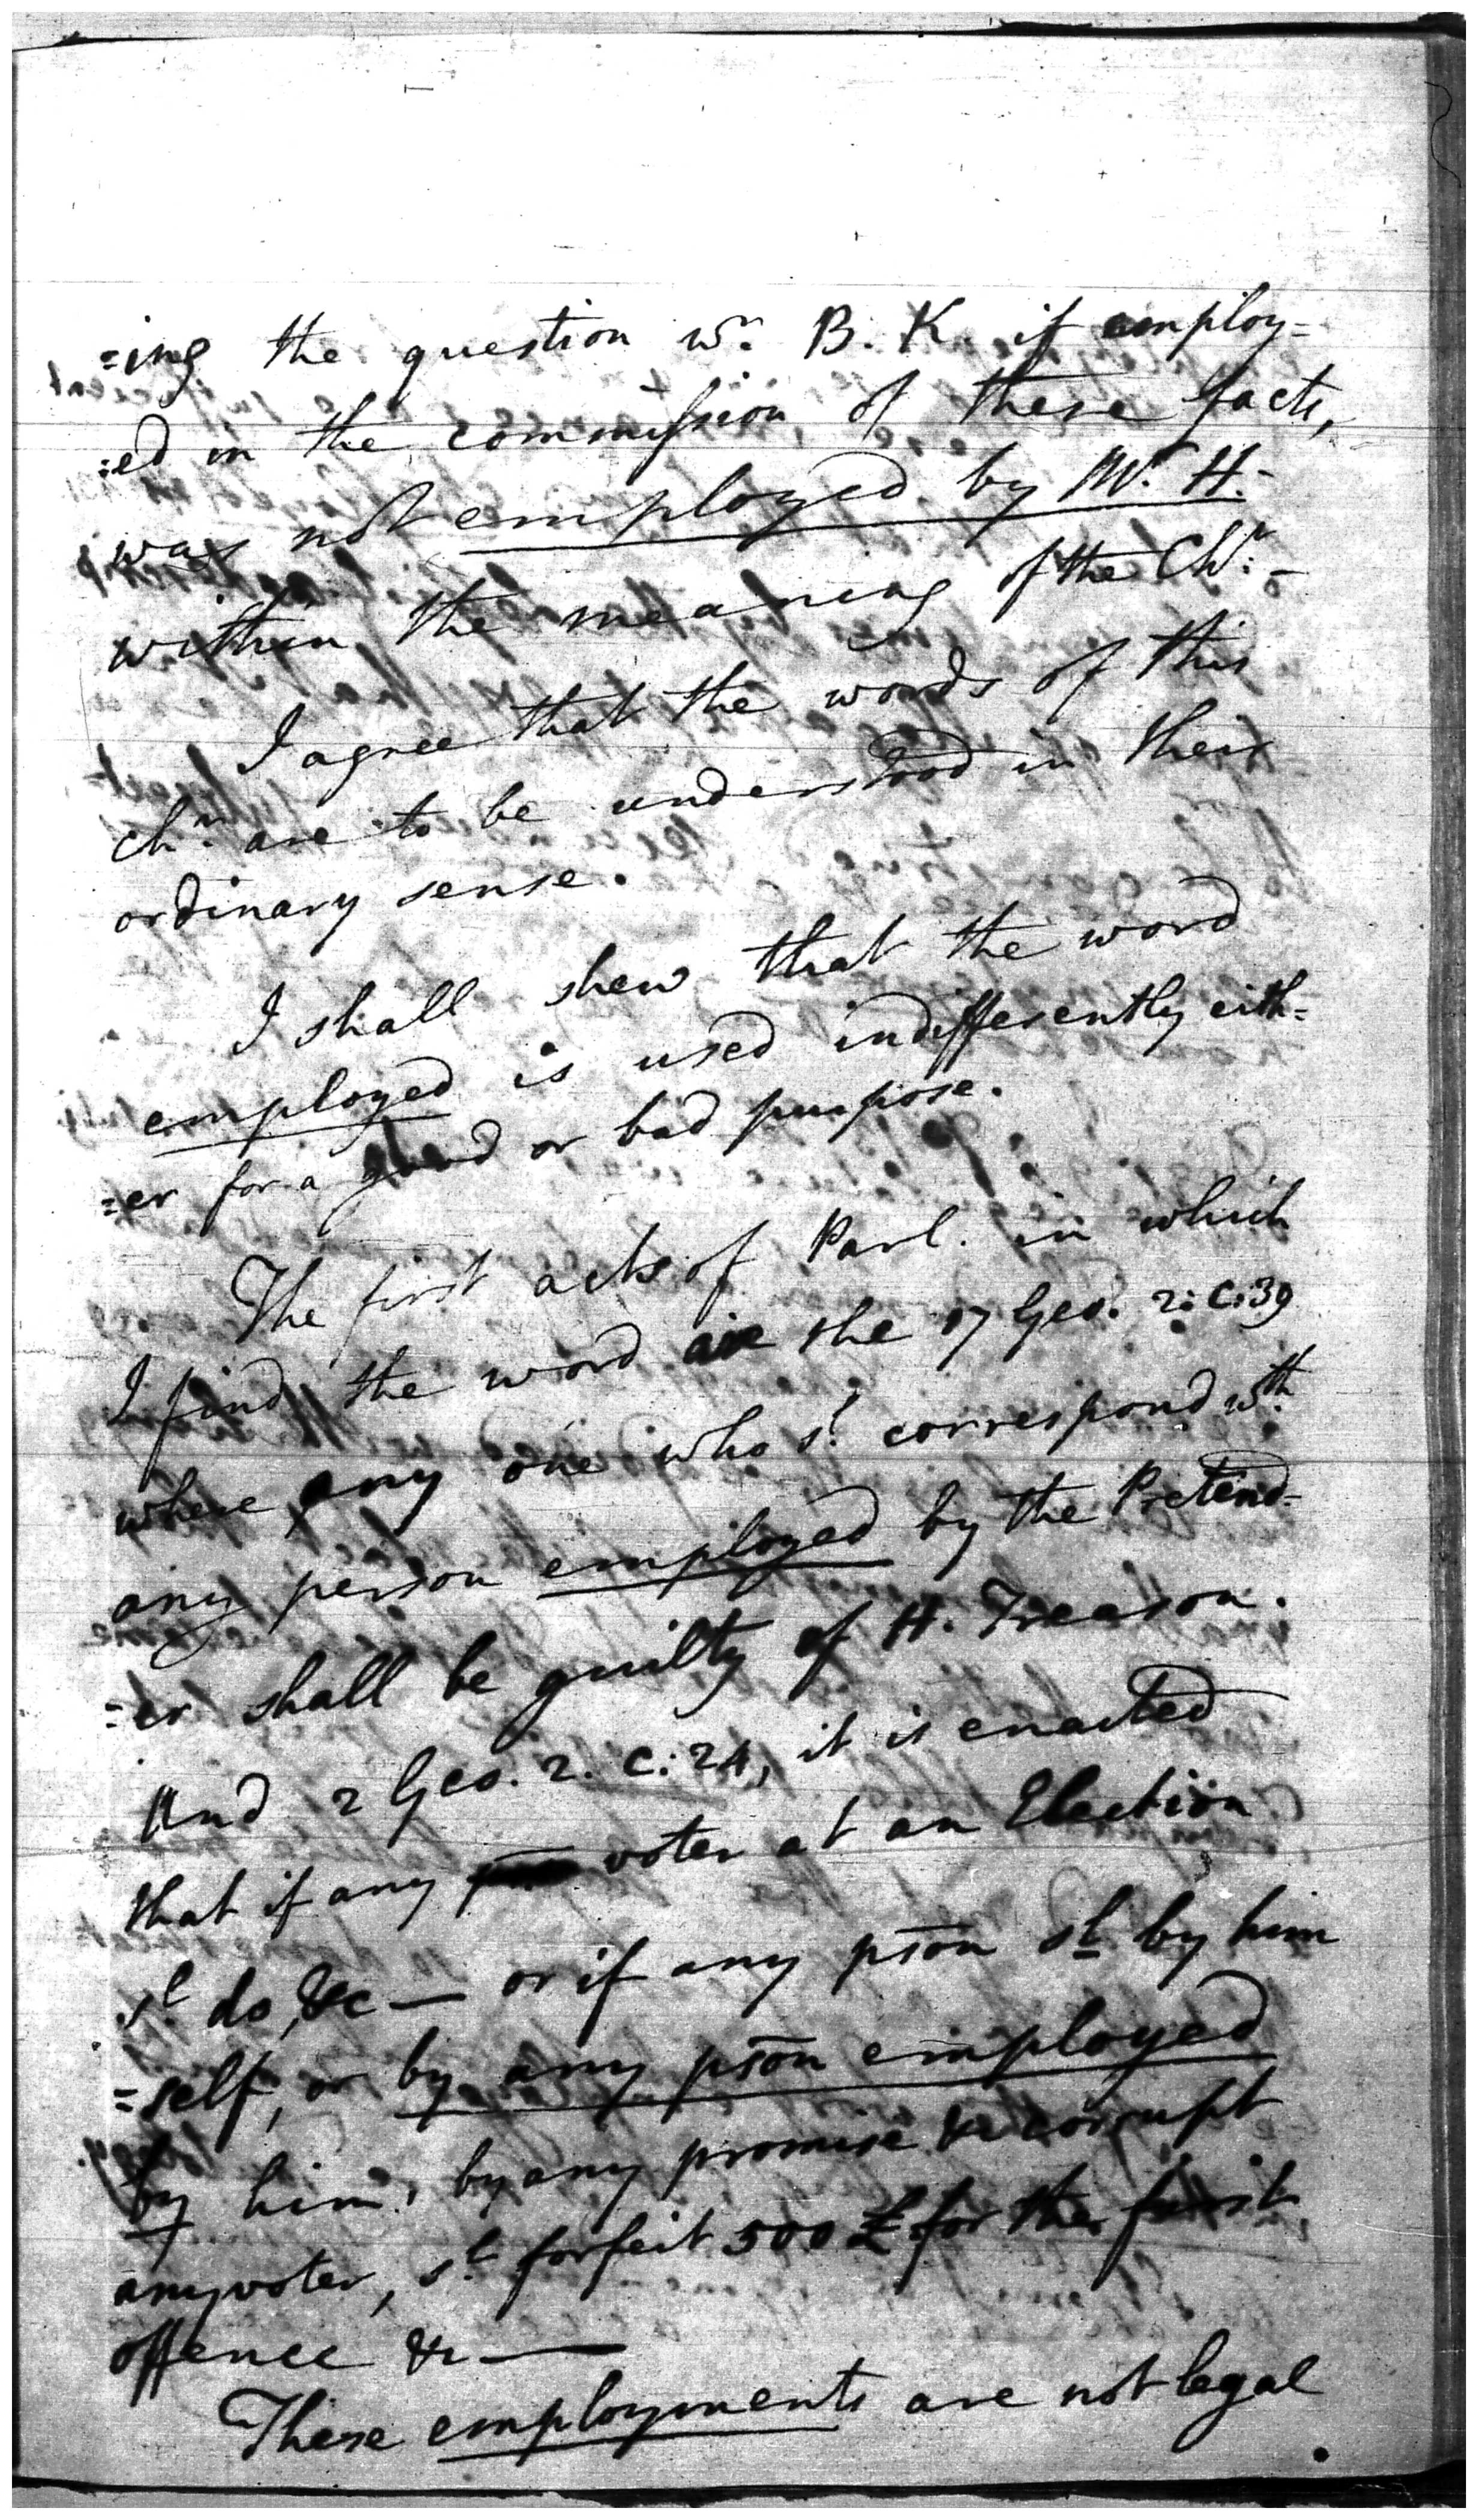 =ing the question wr. B. K. if employ=
=ed in the commission of these facts,
was not employed by W. H.
within the meaning of the Chr. -
I agree that the words of this
chr. are to be understood in their
ordinary sense.
I shall shew that the word
employed is used indifferently eith=
=er for a good or bad purpose.
The first acts of Parl. in which
I find the word are the 17 Geo. 2: C: 39
where any one who sd. correspond wth.
any person employed by the Pretend=
=er shall be guilty of H. Treason.
And 2 Geo. 2. C: 24, it is enacted
that if any voter at an Election
sd. do, &c — or if any pson sd by him
=self, or by any pson employed
by him, by any promise &c corrupt
any voter, sd. forfeit 500 £ for the first
offence &c —
These employments are not legal